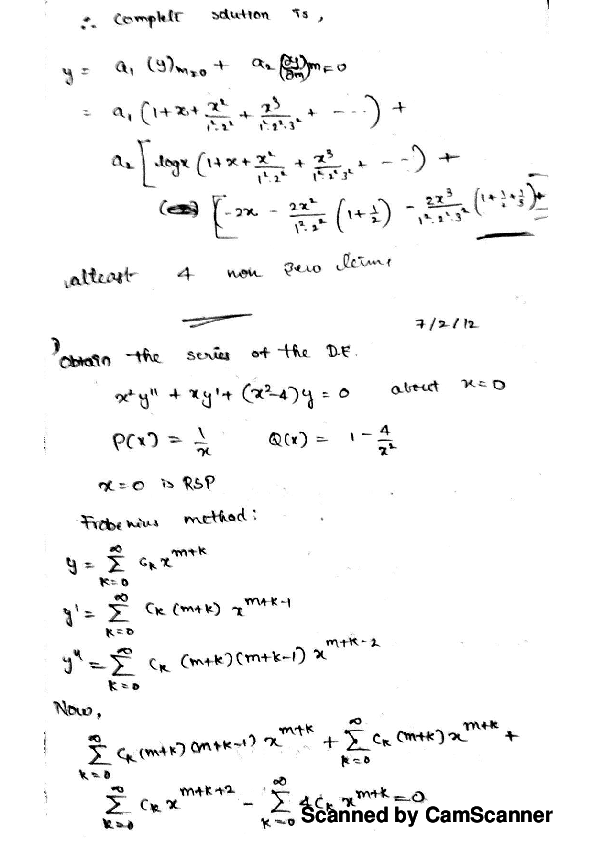 ∴ Complete solution is,
y = a₁ (y)m=0 + a₂ (∂y/∂m)m=0
= a₁ (1+x+ x²/1²·2² + x³/1²·2²·3² + ---) +
a₂ [logx (1+x+ x²/1²·2² + x³/1²·2²·3² + --) +
[-2x - 2x²/1²·2² (1+1/2) - 2x³/1²·2²·3² (1+1/2+1/3)+
atleast 4 non zero terms
7/2/12
1) Obtain the series of the D.E.
x²y" + xy' + (x²-4)y = 0 about x=0
P(x) = 1/x Q(x) = 1 - 4/x²
x=0 is RSP
Frobenius method:
y = ∞ Σ k=0 Cₖ x^m+k
y' = ∞ Σ k=0 Cₖ (m+k) x^m+k-1
y" = ∞ Σ k=0 Cₖ (m+k)(m+k-1) x^m+k-2
Now,
∞ Σ k=0 Cₖ (m+k) (m+k-1) x^m+k + ∞ Σ k=0 Cₖ (m+k) x^m+k +
∞ Σ k=0 Cₖ x^m+k+2 - ∞ Σ k=0 4Cₖ x^m+k = 0
Scanned by CamScanner